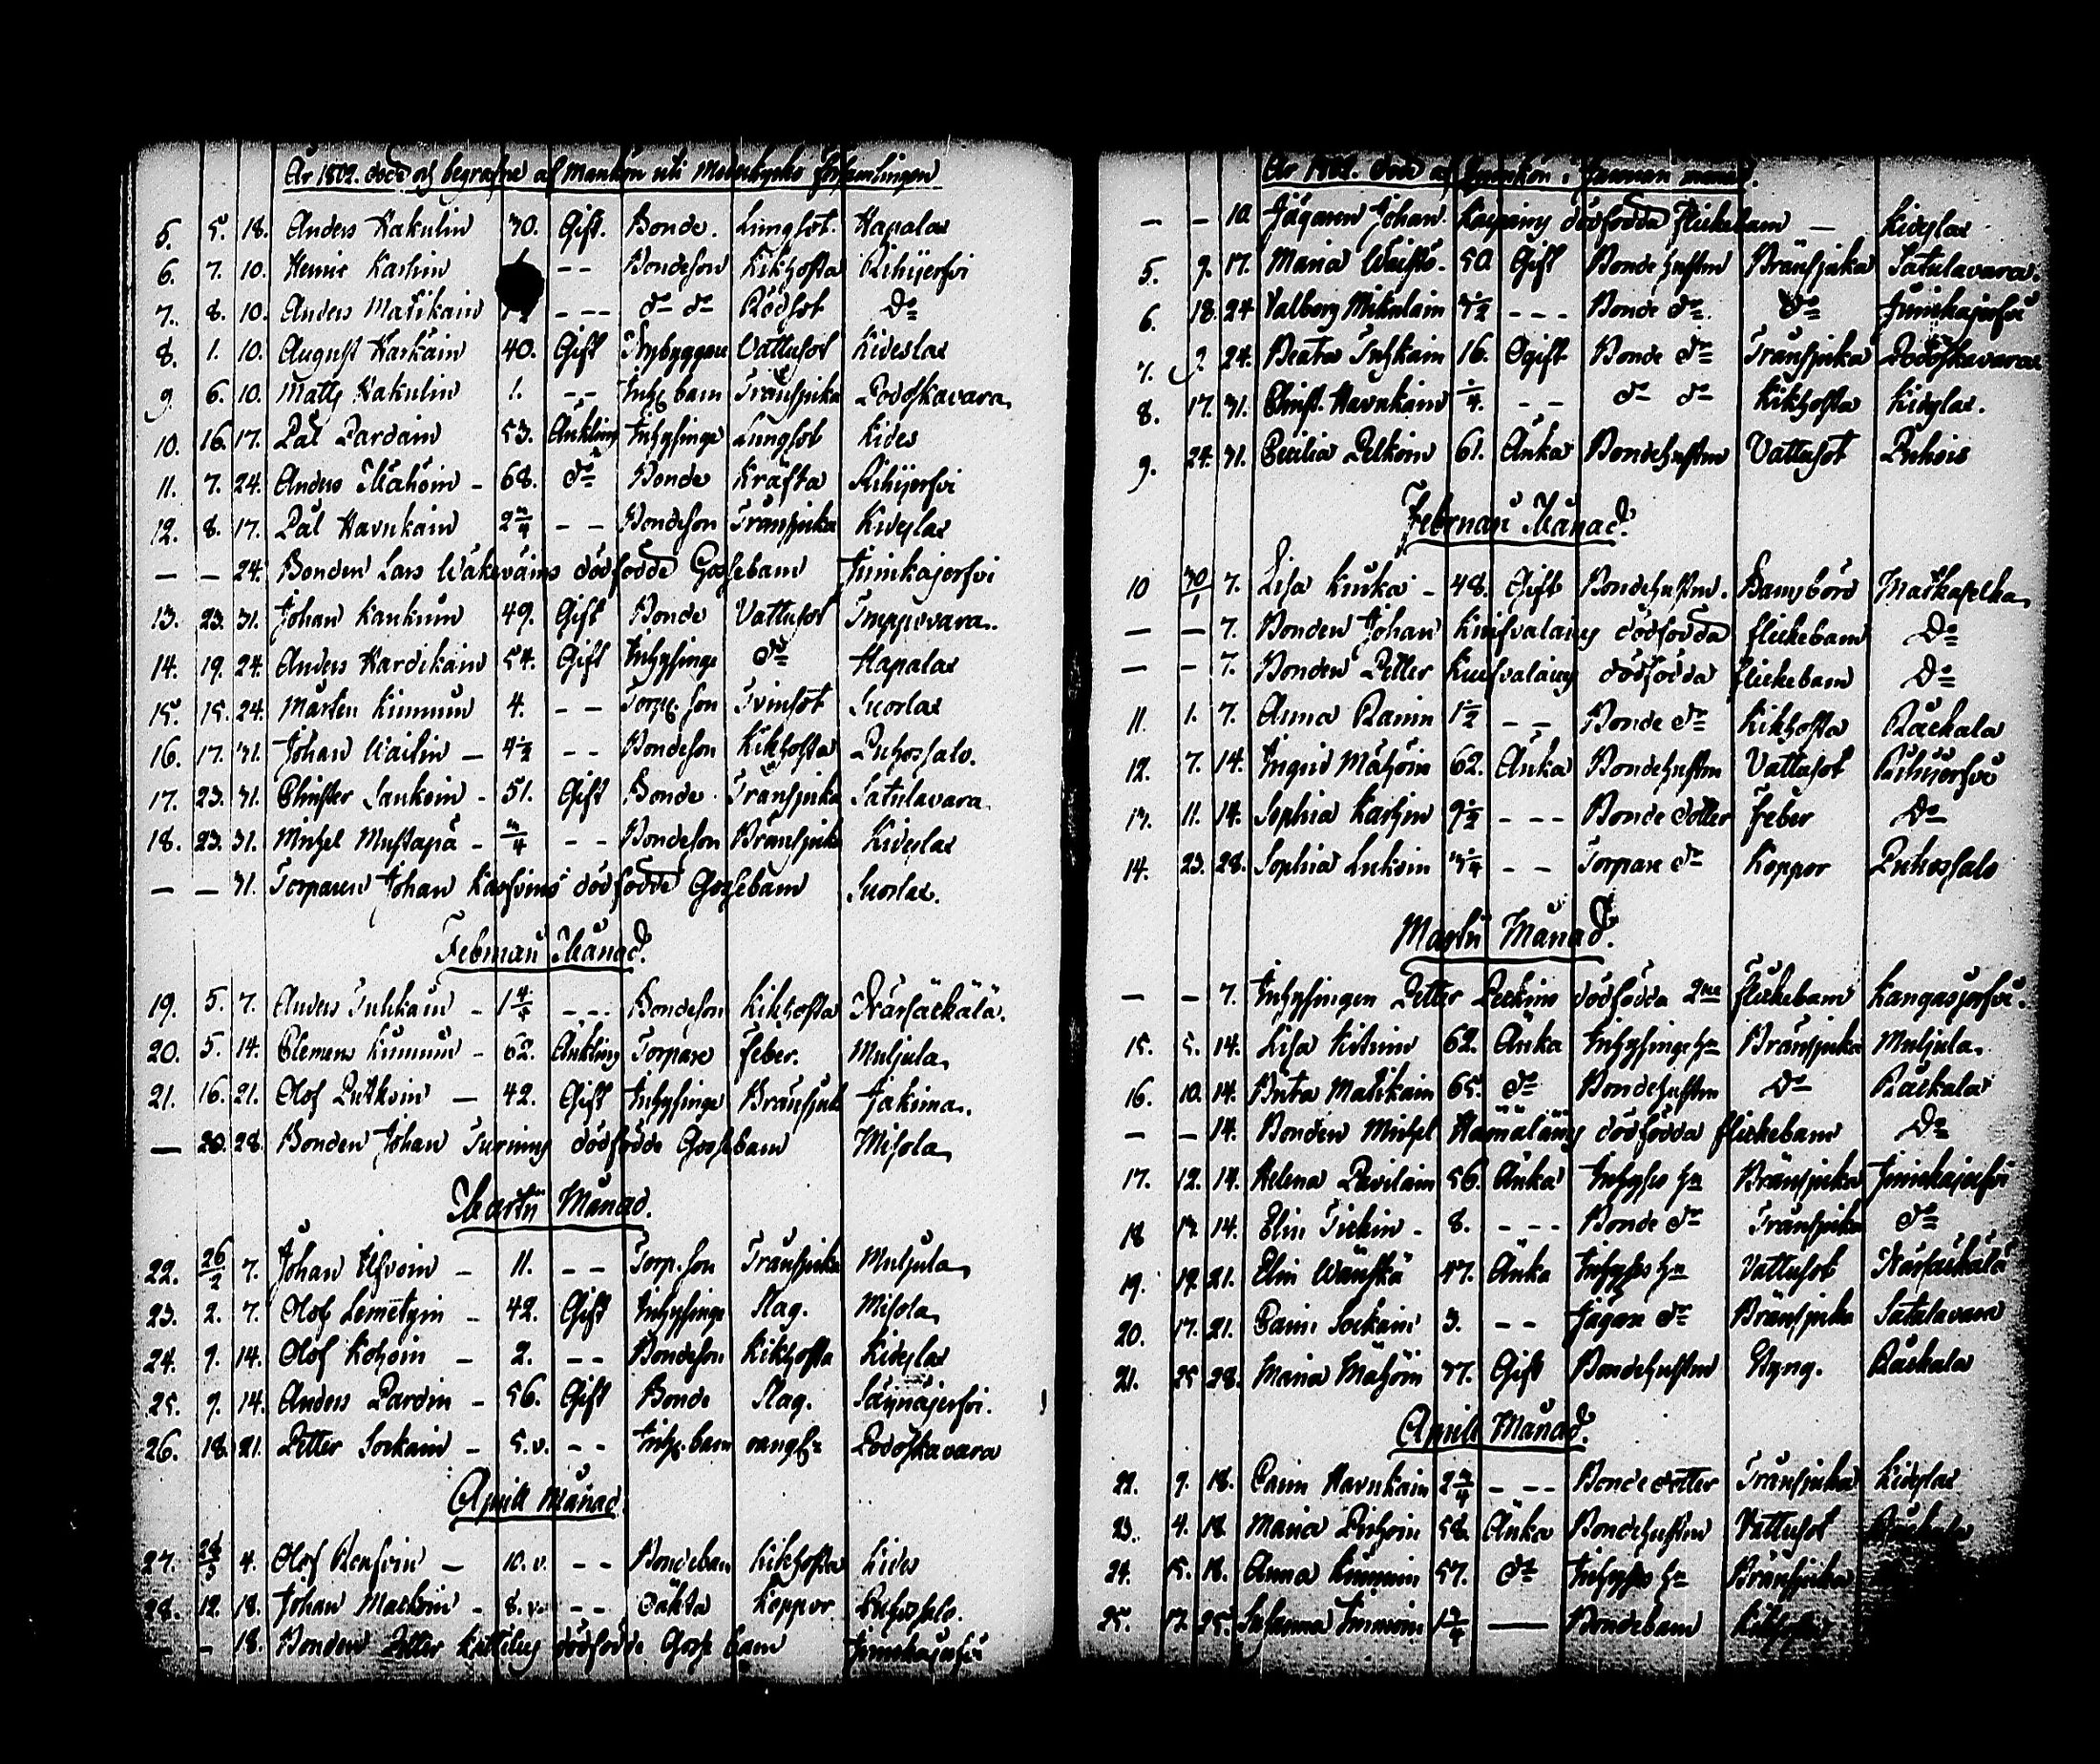 År 1802. döde och begrafne af Mankön uti Moderkyrko församlingen
5. 5. 18. Anders Hakulin 30. Gift. Bonde. Lungsot. Hapalax
6. 7. 10. Henric Karhin - - Bondeson Kikhosta Rihijerfvi
7. 8. 10. Anders Matikain - - - do do Rödsot Do
8. 1. 10. August Karkain 40. Gift Nybyggare Vattusot Kideslax
9. 6. 10. Matts Hakulin 1. - - Inhys barn Trånsjuka Podoskavara
10. 16. 17. Pål Pardain 53. Änkling Inhysinge Lungsot Kides
11. 7. 24. Anders Mähöin - 68. do Bonde Kräfta Rihijerfvi
12. 8. 17. Pål Havukain 2 3/4 - - Bondeson Trånsjuka Kideslax
— — 24. Bonden Lars Wäkeväins dödfödde Gossebarn Juurikajerfvi
13. 23. 31. Johan Kaukiun 49. Gift Bonde Vattusot
14. 19. 24. Anders Hardikain 54. Gift Inhysinge do Hapalax
15. 15. 24. Mårten Kinnuin 4. - - Torp. son Tvinsot Suorlax
16. 17. 31. Johan Wailin — 4 1/2 - - Bondeson Kikhosta Puhossalo.
17. 23. 31. Christer Saukoin - 51. Gift Bonde Trånsjuka Satulavara
18. 23. 31. Michel Mustapä - 3/4 - - Bondeson Brånsjuka Kideslax
— — 31. Torparen Johan Karhins dödfödde Gossebarn Suorlax.
Februari Månad.
19. 5. 7. Anders Tuhkain - 1 - - - Bondeson Kikhosta Närsäckälä.
20. 5. 14. Clemens Kinnuin - 62. Änkling Torpare Feber. Muljula
21. 16. 21. Olof Putkoin — 42. Gift Inhysinge Brånsjuk Jakima
— 20. 28. Bonden Johan Turuins dödfödde Gossebarn Misola
Martii Månad.
22. 26/2 7. Johan Ihvoin — 11. - - Torp. son Trånsjuka Muljula
23. 2. 7. Olof Lemetyin - 42. Gift Inhysinge Slag. Misola
24. 9. 14. Olof Kohoin — 2. - - Bondeson Kikhosta Kideslax
25. 9. 14. Anders Pardin - 56. Gift Bonde Slag. Säynäjerfvi.
26. 18. 21. Petter Sorkain - 5. v. - - Inhys. barn Podoskavara
Aprill Månad
27. 4. Olof Renfvin — 10. v. - - Bondebarn Kikhosta Kides
28. 12. 18. Johan Mackoin - 8. v. - - Oäkta Koppor. Puhossalo.
— - 18. Bonden Petter dödfödde Gossebarn Juurikajerfvi
År 1802. döde af Qvinkön i Januari månad.
— — 10 Jägaren Johan Karpains dödfödda flickebarn — Kideslax
5. 9. 17. Maria Waisto. 50 Gift Bondehustru Brånsjuka Satulavara
6. 18. 24 Valborg Mikulain 3 1/2 - - - Bonde do Do Juurikajerfvi
7. 9. 24. Beata Tuhkain 16. Ogift Bonde do Trånsjuka Podoskavara
8. 17. 31. Christ. Havukain 1/4. - - do do Kikhosta Kideslax.
9. 24. 31. Cecilia Pelkoin 61. Änka Bondehustru Vattusot Puhois
Februarii Månad.
10 30/1 7. Lisa Kurka - 48. Gift Bondehustru. Barnsbörd Matkaselka
— — 7. Bonden Johan Kuifvalains dödfödda flickebarn Do
— — 7. Bonden Petter Kuifvalains dödfödda flickebarn Do
11. 1. 7. Anna Rauin 1 1/2 - - Bonde do Kikhosta Räckala
12. 7. 14. Ingrid Mähöin 62. Änka Bondehustru Vattusot Rihijerfvi
13. 11. 14. Sophia Karhin 9 1/2 - - - Bonde dotter Feber Do
14. 23. 28. Sophia Lukoin 3/4 - - Torpare do Koppor Puhossalo
Martii Månad.
— — 7. Inhysingen Petter Peckins dödfödda 2ne flickebarn Kangasjerfvi.
15. 5. 14. Lisa 62. Änka Inhysinge hu Brånsjuka Muljula
16. 10. 14. Brita Matikain 65. do Bondehustru Do Räckala
— — 14. Bonden Michel Hämäläins dödfödda flickebarn Do
17. 12. 14. Helena Pavilain 56. Änka Inhyses hu Brånsjuka Juurikajerfvi
18 13. 14. Elin Tickin - 8. - - - Bonde do Trånsjuka do
19. 19. 21. Elin Wänskä 47. Änka Inhyses hu Vattusot Närsäckälä
20. 17. 21. Carin Sorkain 3. - - Jägare do Brånsjuka Satulavara
21. 25 28. Maria Mähöin 37. Gift Bondehustru Styng. Räckala
Aprill Månad.
22. 9. 18. Carin Havukain 2 3/4 - - - Bonde dotter Trånsjuka Kideslax
23. 4. 18 Maria Pirhoin 58. Änka Bondehustru Vattusot Räckala
24. 15. 18. Anna Kinnuin 57. do Inhyses hu Brånsjuka
25. 17. 25. Susanna 1 — Bondebarn Kikhosta